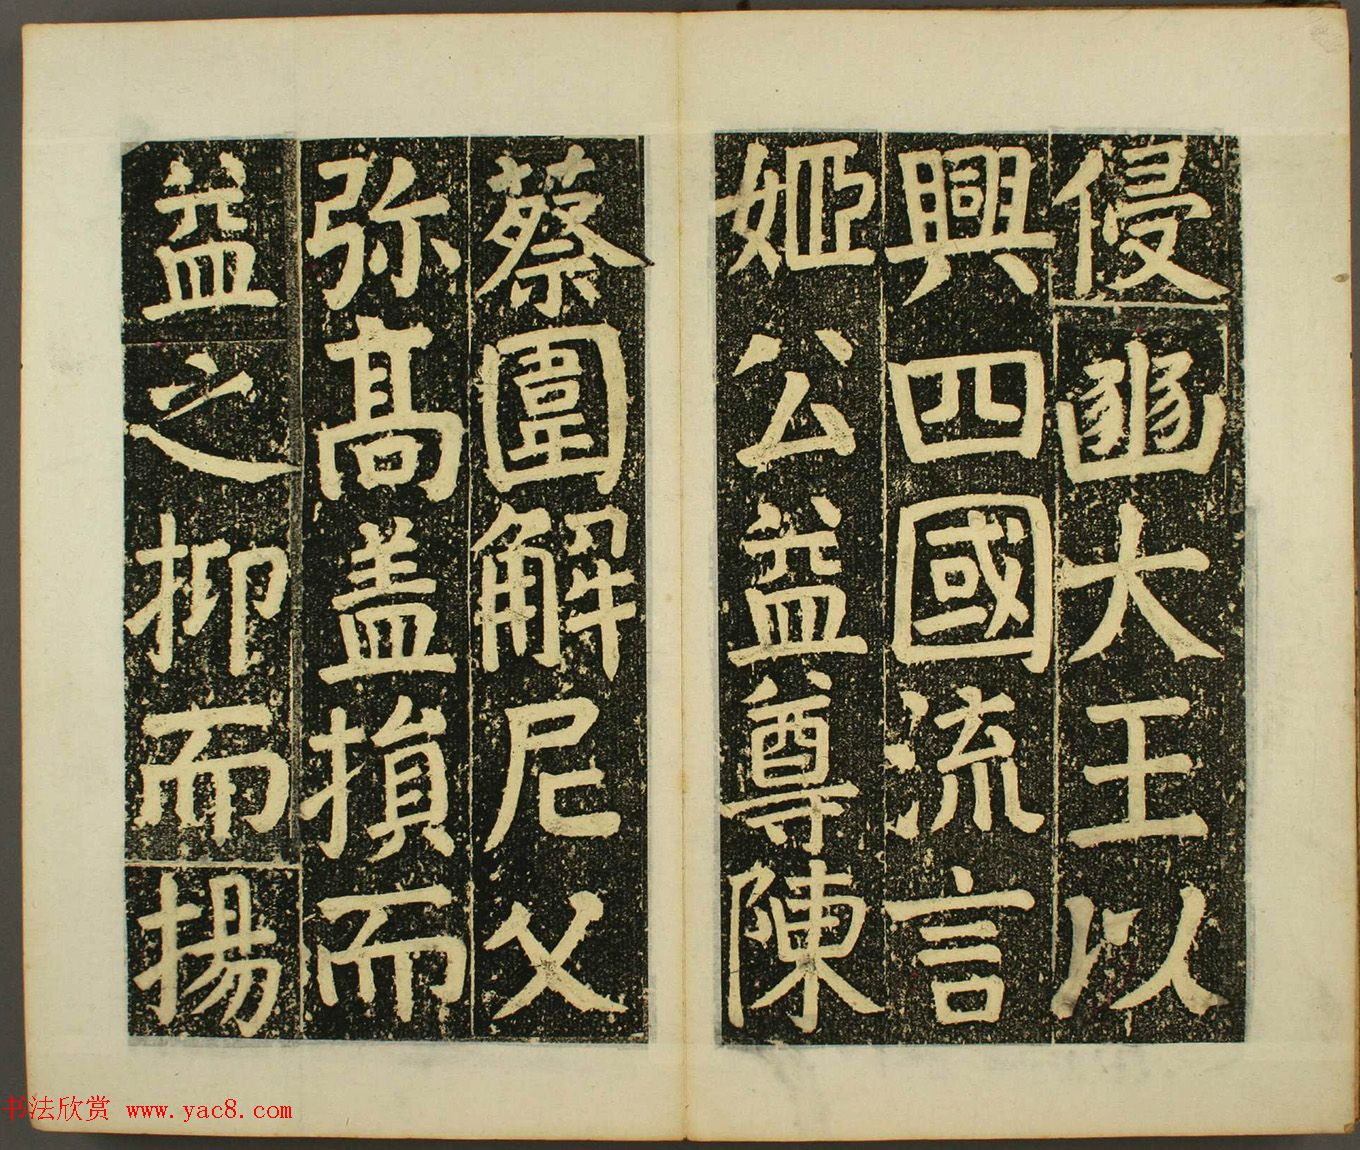 侵豳大王以
興四國流言
姬公益尊陳
蔡圍解尼父
弥高盖損而
益之抑而揚
书法欣赏 www.yac8.com